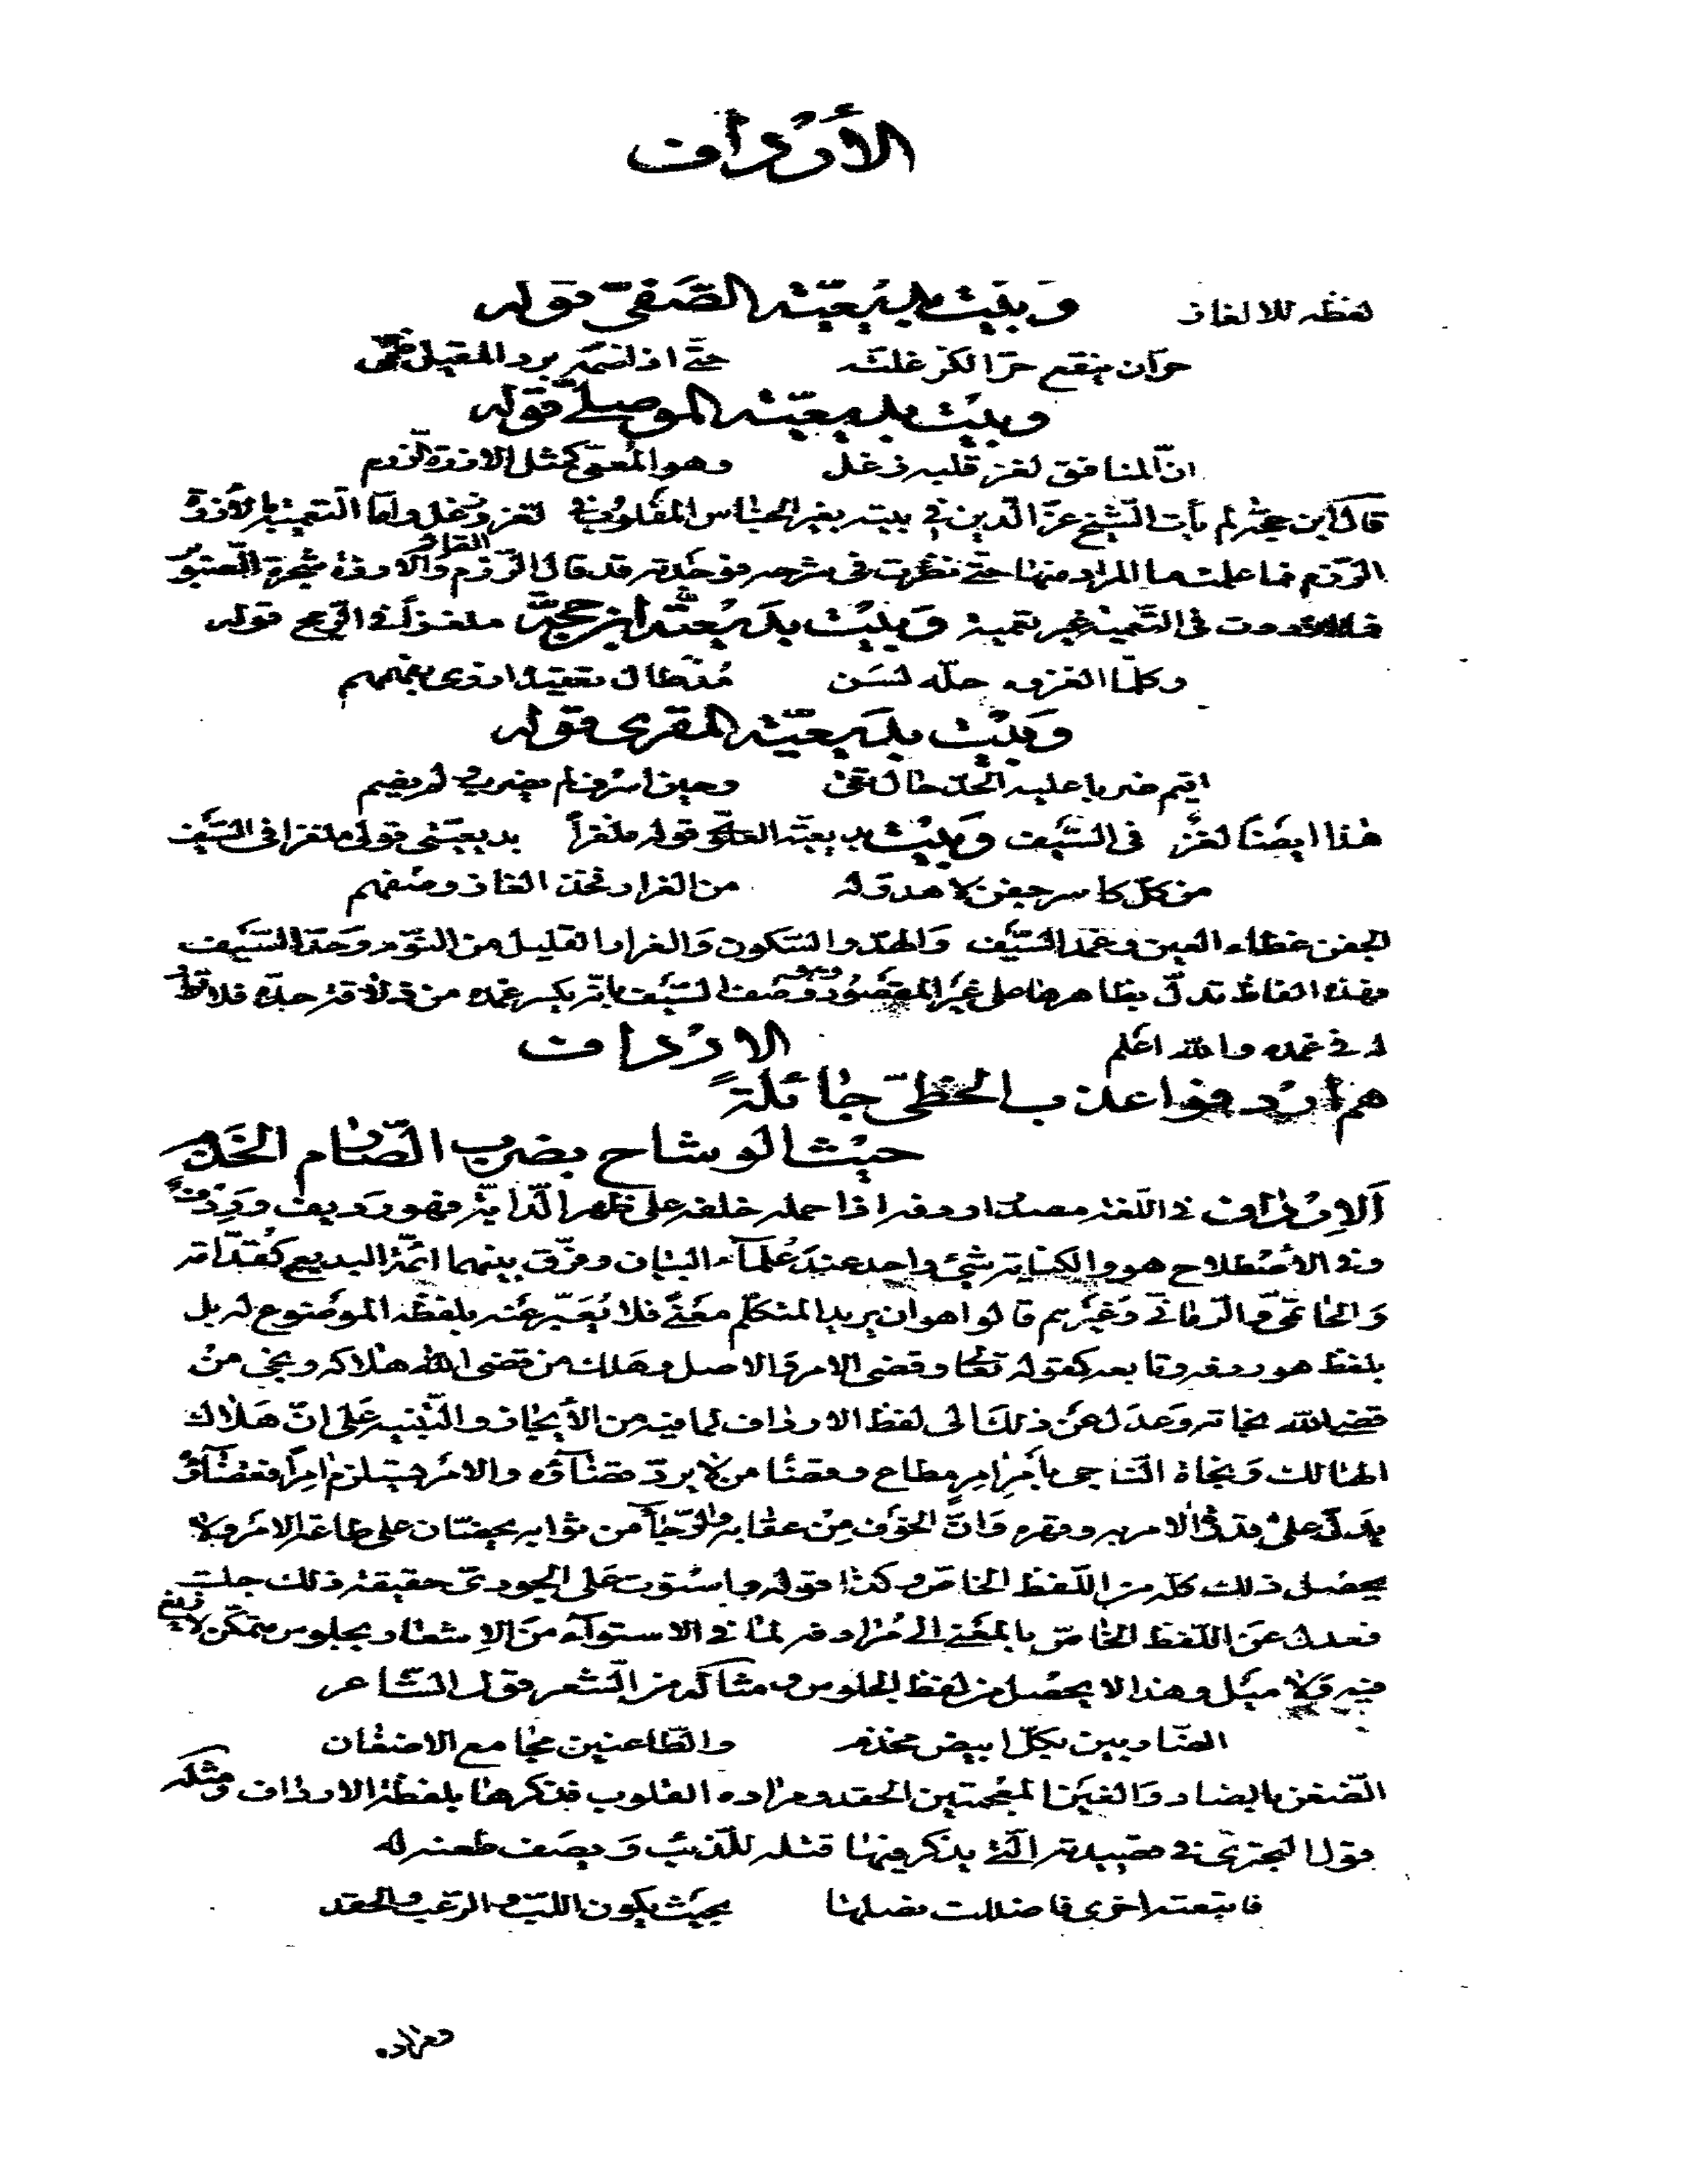 الأرداف
لفظه للالغاز وبيت بديعيّة الصّفيّ قوله
حرّان ينقع حرّ الكرّ غلّته حتّى اذا ضمّه برد المقيل ظمي
وبيت بديعيّة الموصلي قوله
انّ المنافق لغز قلبه زغل وهو المعمّى كمثل الارزة الرزم
قال ابن حجّة لم يأت الشّيخ عزّ الدّين في بيته بغير الجناس المقلوب في لغز وزغل وامّا التعمية بالأرزة
الرّزم فما علمت ما المراد منها حتّى نظرت في شرحه فوجدته قد قال الرّزم القرار والارزة شجرة الصّنوبر
فازددت في التّعمية غير تعمية وبيت بديعيّة ابن حجّة ملغزاً في الرّمح قوله
وكلّما الغزوه حلّه لسن مذ طال تعقيده ازرى بفهمهم
وبيت بديعيّة المقري قوله
اقيم ضربا عليه الحدّ حال تقى وحين اسرف لم يضرب ولم يضم
هذا ايضاً لغز في السّيف وبيت بديعيّة العلويّ قوله ملغزاً بديعيّتي قولي ملغزا في السّيف
من كلّ كاسر جفن لا هدوّ له من الغرار فخذ الغازه وصفهم
الجفن غطاء العين وغمد السّيف والهدوّ السّكون والغرار القليل من النّوم وحدّ السّيف
وهذه الفاظ تدلّ بظاهرها على غير المقصود وهو وصف السّيف بانّه يكسر غمده من ذلاقة حدّه فلا قرار
له في غمده والله اعلم الارداف
هم أردفوا عذب الخطّيّ جائلةً
حيث الوشاح بضرب الصّارم الخذم
الإرداف في اللّغة مصدر اردفه اذا حمله خلفه على ظهر الدّابّة فهو رديف وردف
وفي الأصطلاح هو والكناية شيء واحد عند علماء البيان وفرّق بينهما ائمّة البديع كقدامة
والحاتمي والرّماني وغيرهم قالوا هو ان يريد المتكلّم معنىً فلا يعبّر عنه بلفظه الموضوع له بل
بلفظ هو ردفه وتابعه كقوله تعالى وقضي الامر والاصل وهلك من قضى الله هلاكه ونجى من
قضى الله نجاته وعدل عن ذلك الى لفظ الارداف لما فيه من الأيجاز والتّنبيه على انّ هلاك
الهالك ونجاة النّاجي بأمر امر مطاع وقضا من لا يردّ قضاؤه والامر يستلزم امراً فقضاؤه
يدلّ على قدرة الامر به وقهره وانّ الخوف من عقابه والرّجاء من ثوابه يحضّان على طاعة الامر ولا
يحصل ذلك كلّه من اللّفظ الخاصّ وكذا قوله واستوت على الجودي حقيقة ذلك جلست
فعدل عن اللّفظ الخاصّ بالمعنى الى مرادفه لما في الاستواء من الإشعار بجلوس متمكّن لا زيغ
فيه ولا ميل وهذا لا يحصل من لفظ الجلوس ومثاله من الشّعر قول الشّاعر
الضّاربين بكلّ ابيض مخذم والطّاعنين مجامع الاضغان
الضّغن بالضاد والغين المعجمتين الحقد ومراده القلوب فذكرها بلفظة الارداف ومثله
قول البحتري في قصيدته الّتي يذكر فيها قتله للذّئب ويصف طعنه له
فاتبعته اخرى فاضللت نصلها بحيث يكون اللبّ والرّعب والحقد
ومراده